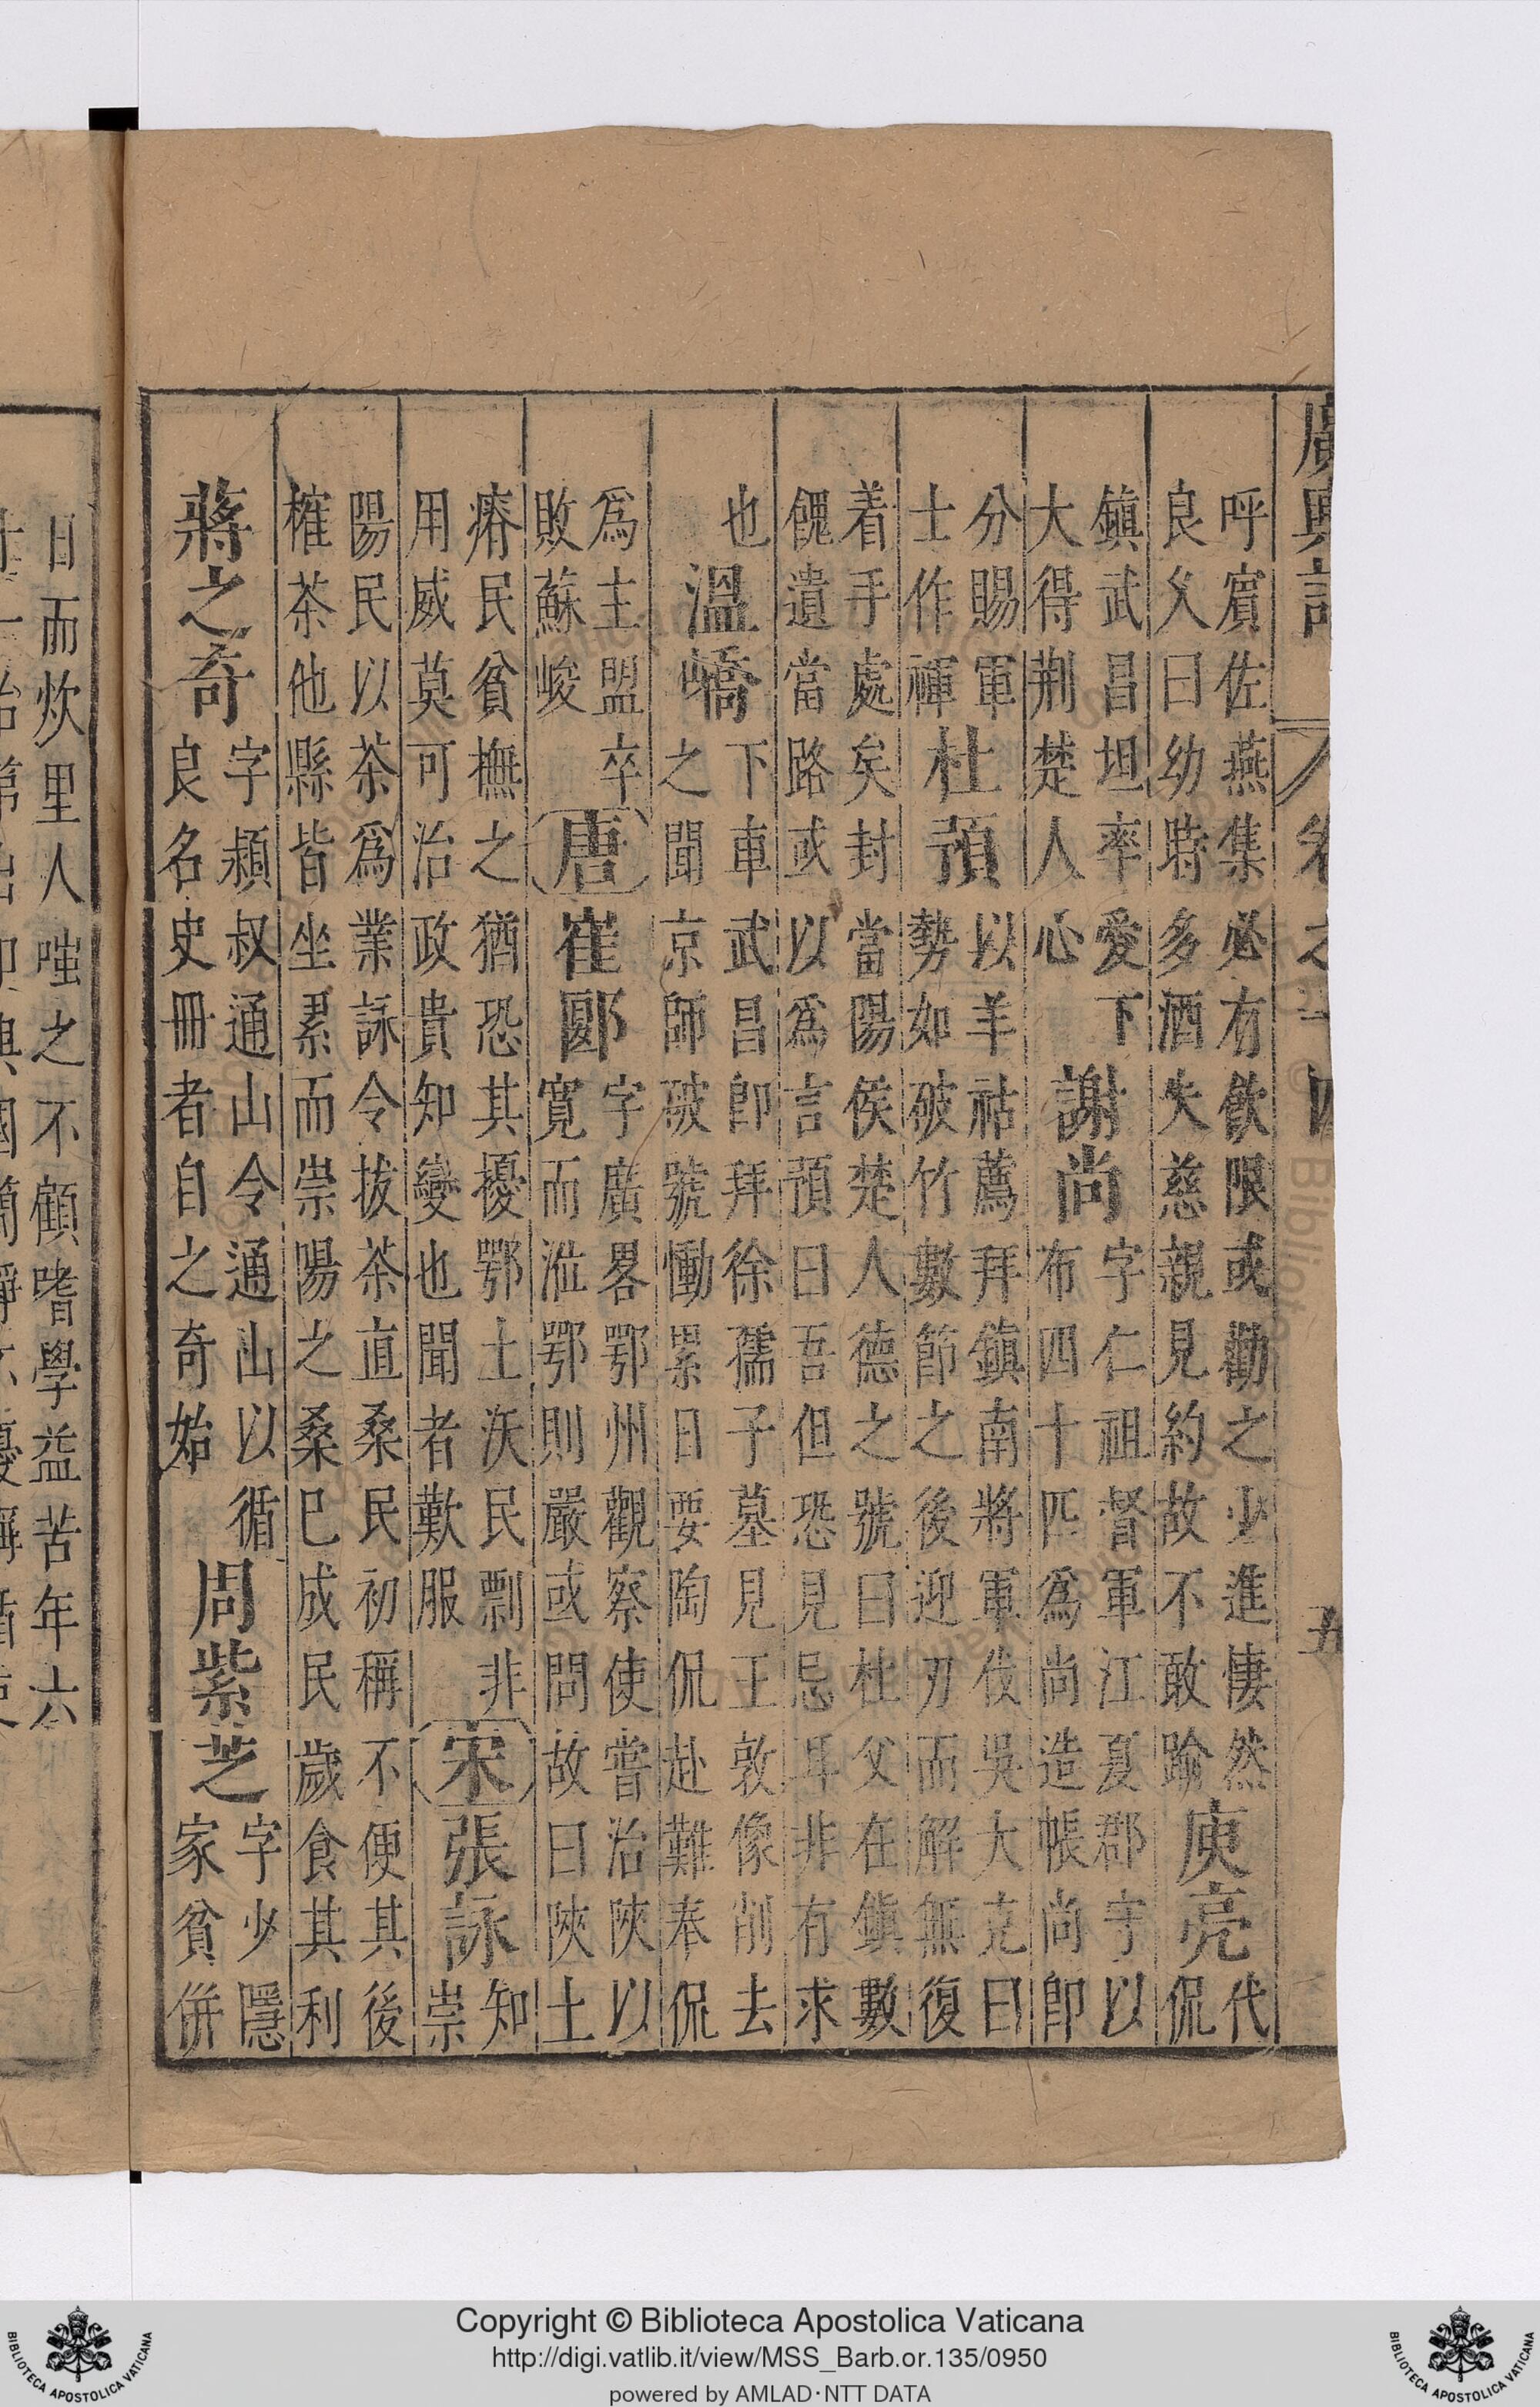 廣輿記 卷之十四 五
呼賔佐燕集必有飲限或勸之少進悽然
良久曰幼時多酒失慈親見約故不敢踰
庾亮
代
侃
鎮武昌坦率愛下
大得荆楚人心
謝尚
字仁祖督軍江夏郡守以
布四十匹爲尚造帳尚即
分賜軍
士作褌
杜預
以羊祜薦拜鎮南將軍伐吳大克曰
勢如破竹數節之後迎刃而解無復
着手處矣封當陽侯楚人德之號曰杜父在鎮數
餽遺當路或以爲言預曰吾但恐見忌耳非有求
也
溫嶠
下車武昌即拜徐孺子墓見王敦像削去
之聞京師破號慟累日要陶侃赴難奉侃
爲主盟卒
敗蘇峻
唐
崔郾
字廣畧鄂州觀察使嘗治陝以
寛而涖鄂則嚴或問故曰陝土
瘠民貧撫之猶恐其擾鄂土沃民剽非
用威莫可治政貴知變也聞者歎服
宋
張詠
知
崇
陽民以茶爲業詠令拔茶直桑民初稱不便其後
榷茶他縣皆坐累而崇陽之桑巳成民歲食其利
蔣之奇
字潁叔通山令通山以循
良名史冊者自之奇始
周紫芝
字少隱
家貧併
日而炊里人嗤之不顧嗜學益苦年六
Copyright © Biblioteca Apostolica Vaticana
http://digi.vatlib.it/view/MSS_Barb.or.135/0950
powered by AMLAD·NTT DATA
BIBLIOTECA APOSTOLICA VATICANA
BIBLIOTECA APOSTOLICA VATICANA